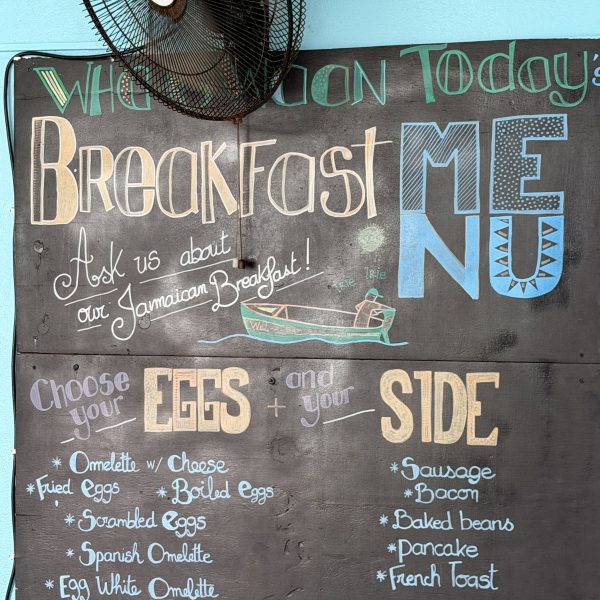 Today's
Breakfast MENU
Ask us about
our Jamaican Breakfast!
Irie Irie
Choose your EGGS + and your SIDE
* Omelette w/ Cheese
* Fried eggs * Boiled eggs
* Scrambled eggs
* Spanish Omelette
* Egg White Omelette
* Sausage
* Bacon
* Baked beans
* Pancake
* French Toast